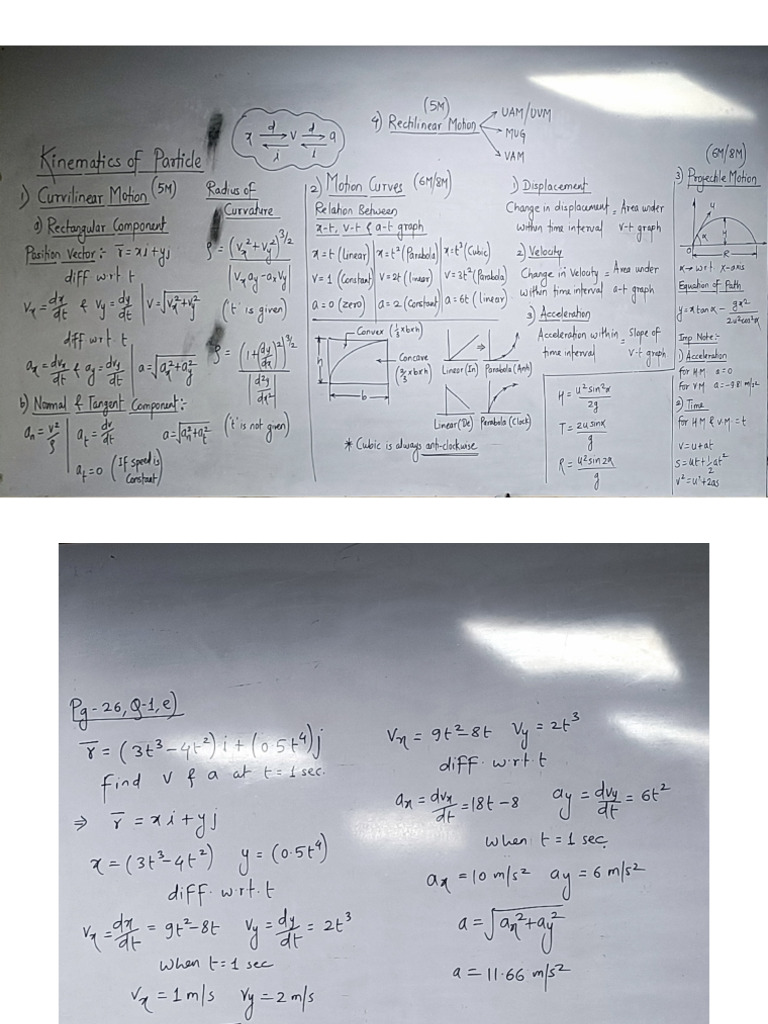 Kinematics of Particle
1) Curvilinear Motion (5M)
a) Rectangular Component
Position Vector:- r̅ = xi + yj
diff w.r.t. t
Vx = dx/dt & Vy = dy/dt | V = √(Vx² + Vy²)
diff w.r.t. t
ax = dVx/dt & ay = dVy/dt | a = √(ax² + ay²)
b) Normal & Tangent Component:-
an = v²/ρ | at = dv/dt a = √(an² + at²)
at = 0 (If speed is Constant)
x ⇌ v ⇌ a
d d
i i
Radius of
Curvature
ρ = (Vx² + Vy²)^3/2 / |Vx ay - ax Vy|
('t' is given)
ρ = (1 + (dy/dx)²)^3/2 / |d²y/dx²|
('t' is not given)
2) Motion Curves (6M/8M)
Relation Between
x-t, v-t & a-t graph
x = t (Linear) | x = t² (Parabola) | x = t³ (Cubic)
v = 1 (Constant) | v = 2t (linear) | v = 3t² (Parabola)
a = 0 (zero) | a = 2 (Constant) | a = 6t (linear)
Convex (1/3 x b x h)
Concave
(2/3 x b x h)
h
b
Linear (In) ⇒ Parabola (Anti)
Linear (De) Parabola (Clock)
* Cubic is always anti-clockwise
4) Rectilinear Motion (5M)
UAM/UVM
MUG
VAM
1) Displacement
Change in displacement = Area under
within time interval v-t graph
2) Velocity
Change in Velocity = Area under
within time interval a-t graph
3) Acceleration
Acceleration within = Slope of
time interval v-t graph
H = u² sin²α / 2g
T = 2u sinα / g
R = u² sin2α / g
(6M/8M)
3) Projectile Motion
u
α
O
R
α → w.r.t. x-axis
Equation of Path
y = x tan α - gx² / 2u² cos²α
Imp Note:-
1) Acceleration
for HM a = 0
For VM a = -9.81 m/s²
2) Time
for HM & VM = t
v = u + at
s = ut + 1/2 at²
v² = u² + 2as
Pg-26, Q-1, e)
r̅ = (3t³ - 4t²) i + (0.5t⁴) j
find v & a at t = 1 sec.
⇒ r̅ = xi + yj
x = (3t³ - 4t²) y = (0.5t⁴)
diff. w.r.t. t
Vx = dx/dt = 9t² - 8t Vy = dy/dt = 2t³
when t = 1 sec
Vx = 1 m/s Vy = 2 m/s
Vx = 9t² - 8t Vy = 2t³
diff. w.r.t. t
ax = dvx/dt = 18t - 8 ay = dvy/dt = 6t²
when t = 1 sec.
ax = 10 m/s² ay = 6 m/s²
a = √(ax² + ay²)
a = 11.66 m/s²